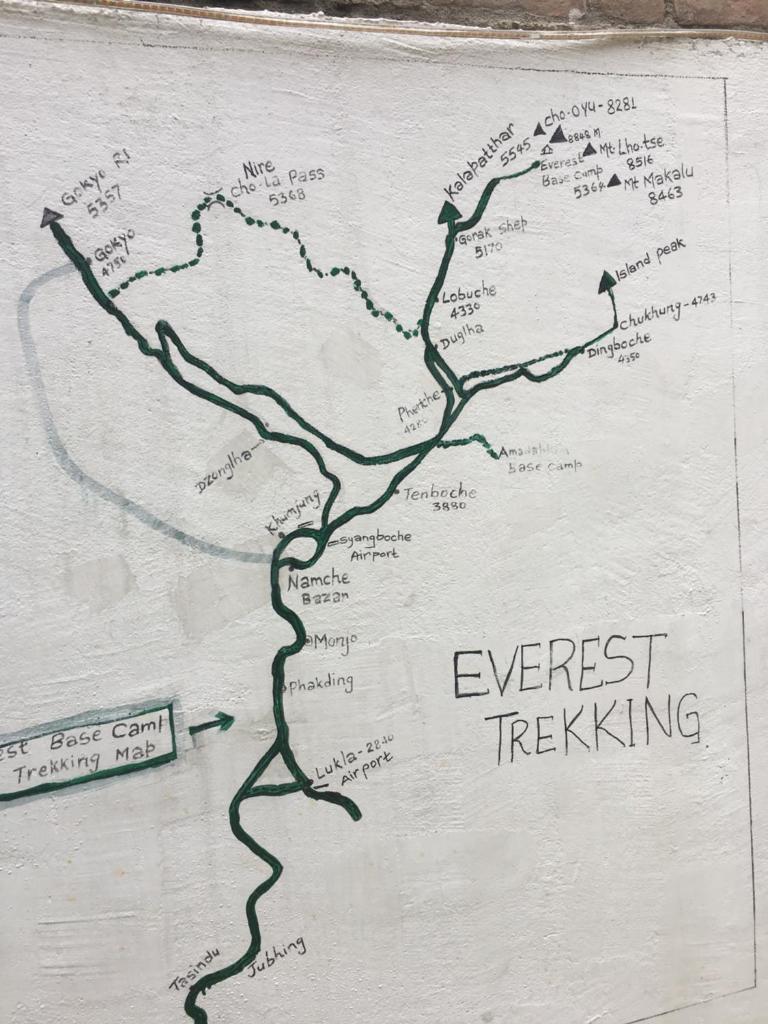 cho-oyu-8281
8848 M
Kalapatthar
5545
Everest
Base Camp
5364
Mt Lhotse
8516
Mt Makalu
8463
Gokyo Ri
5357
Nire
cho-La Pass
5368
Gokyo
4750
Gorak Shep
5170
Island peak
Lobuche
4330
Duglha
Chukhung-4743
Dingboche
4350
Base camp
Dzonglha
Tenboche
3880
Khumjung
Syangboche
Airport
Namche
Bazan
Monjo
Phakding
EVEREST
TREKKING
est Base Camp
Trekking Map
Lukla-
Airport
Jubhing
Tasindu